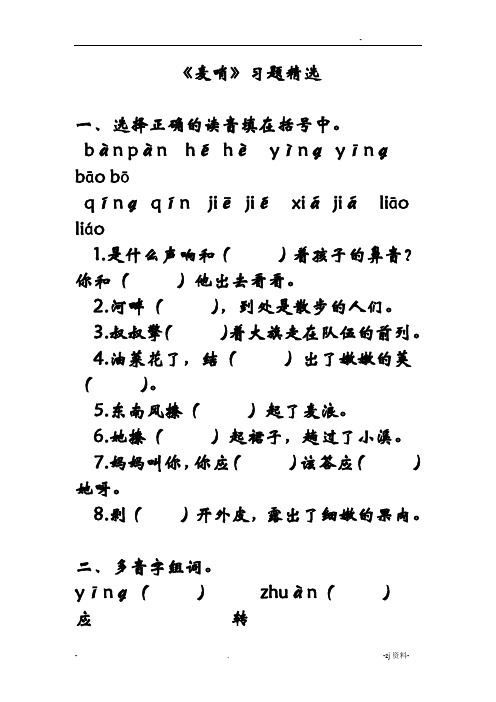 《麦哨》习题精选
一、选择正确的读音填在括号中。
bànpàn hé hè yìng yīng
bāo bō
qíng qín jiē jié xiá jiá liāo
liáo
1.是什么声响和（ ）着孩子的鼻音？
你和（ ）他出去看看。
2.河畔（ ），到处是散步的人们。
3.叔叔擎（ ）着大旗走在队伍的前列。
4.油菜花了，结（ ）出了嫩嫩的荚
（ ）。
5.东南风撩（ ）起了麦浪。
6.她撩（ ）起裙子，趟过了小溪。
7.妈妈叫你，你应（ ）该答应（ ）
她呀。
8.剥（ ）开外皮，露出了细嫩的果肉。
二、多音字组词。
yīng（ ） zhuàn（ ）
应 转
- . -zj资料-